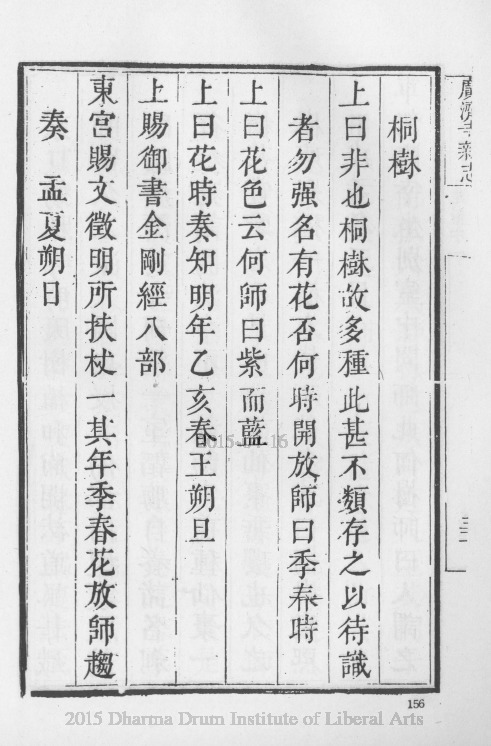 廣濟寺新志
桐樹
上曰非也桐樹故多種此甚不類存之以待識
者勿强名有花否何時開放師曰季春時
上曰花色云何師曰紫而藍
上曰花時奏知明年乙亥春王朔旦
上賜御書金剛經八部
東宮賜文徵明所扶杖 其年季春花放師趨
奏 孟夏朔日
2015-Jul-16
156
2015 Dharma Drum Institute of Liberal Arts